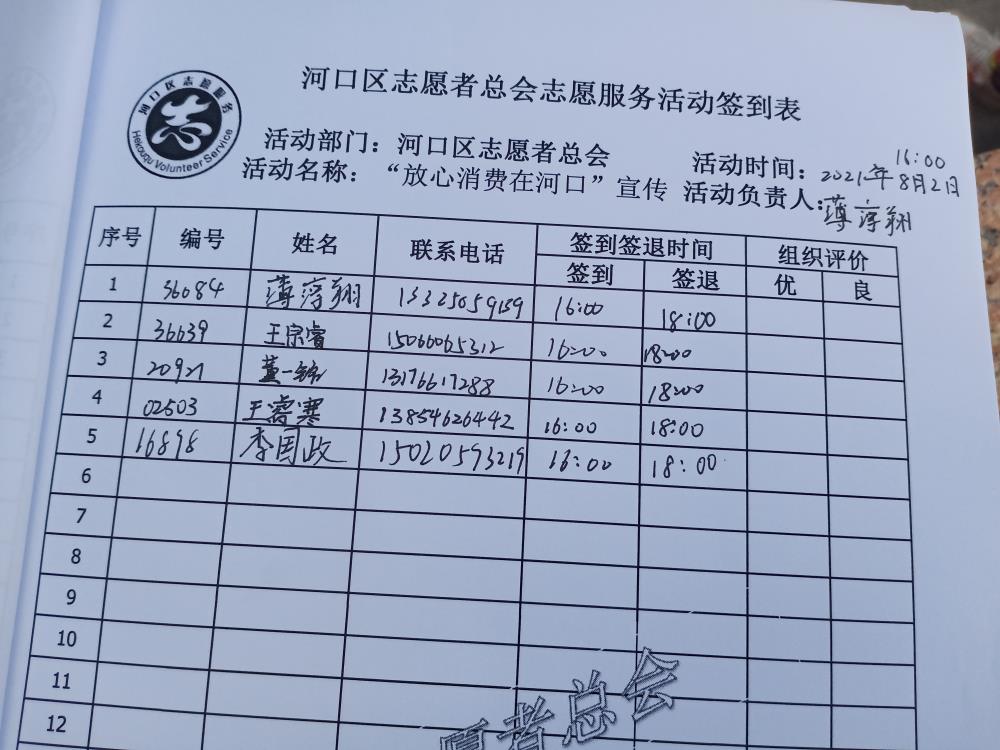 河口区志愿服务
Hekouqu Volunteer Service
河口区志愿者总会志愿服务活动签到表
活动部门：河口区志愿者总会 活动时间：2021年8月2日 16:00
活动名称：“放心消费在河口”宣传 活动负责人：薄淳翔
序号 编号 姓名 联系电话 签到签退时间 组织评价
签到 签退 优 良
1 36084 薄淳翔 13325059159 16:00 18:00
2 36639 王宗睿 15066065312 16:00 18:00
3 20927 董一铭 13176617288 16:00 18:00
4 02503 王睿寒 13854626442 16:00 18:00
5 16898 李国政 15020593219 16:00 18:00
6
7
8
9
10
11
12
愿者总会